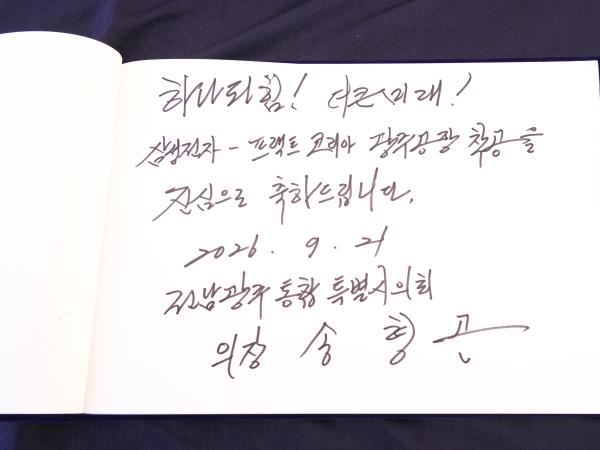 하나된 힘! 더 큰 미래!
삼성전자 - 프랙트 코리아 광주공장 착공을
진심으로 축하드립니다.
2026. 9. 21
전남광주 통합 특별시의회
의장 송 형 곤